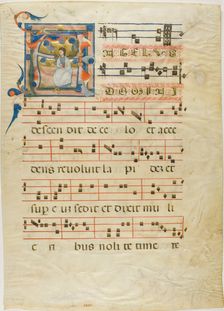 NGELVS
DOMINI
descen dit de ce lo et acce
dens reuoluit la pi dez et
sup eu sedit et dixit mu li
e ri bus noli te time re